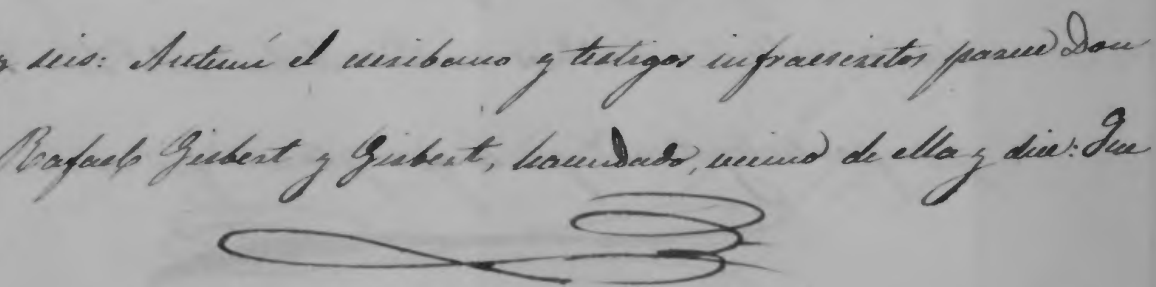 y seis: Antemi el escribano y testigos infraescritos parece Don
Rafael Gisbert y Gisbert, hacendado, vecino de ella y dice: Que